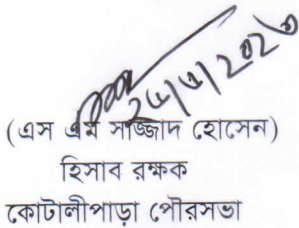 ২৫/৫/২০২৩
(এস এম সাজ্জাদ হোসেন)
হিসাব রক্ষক
কোটালীপাড়া পৌরসভা